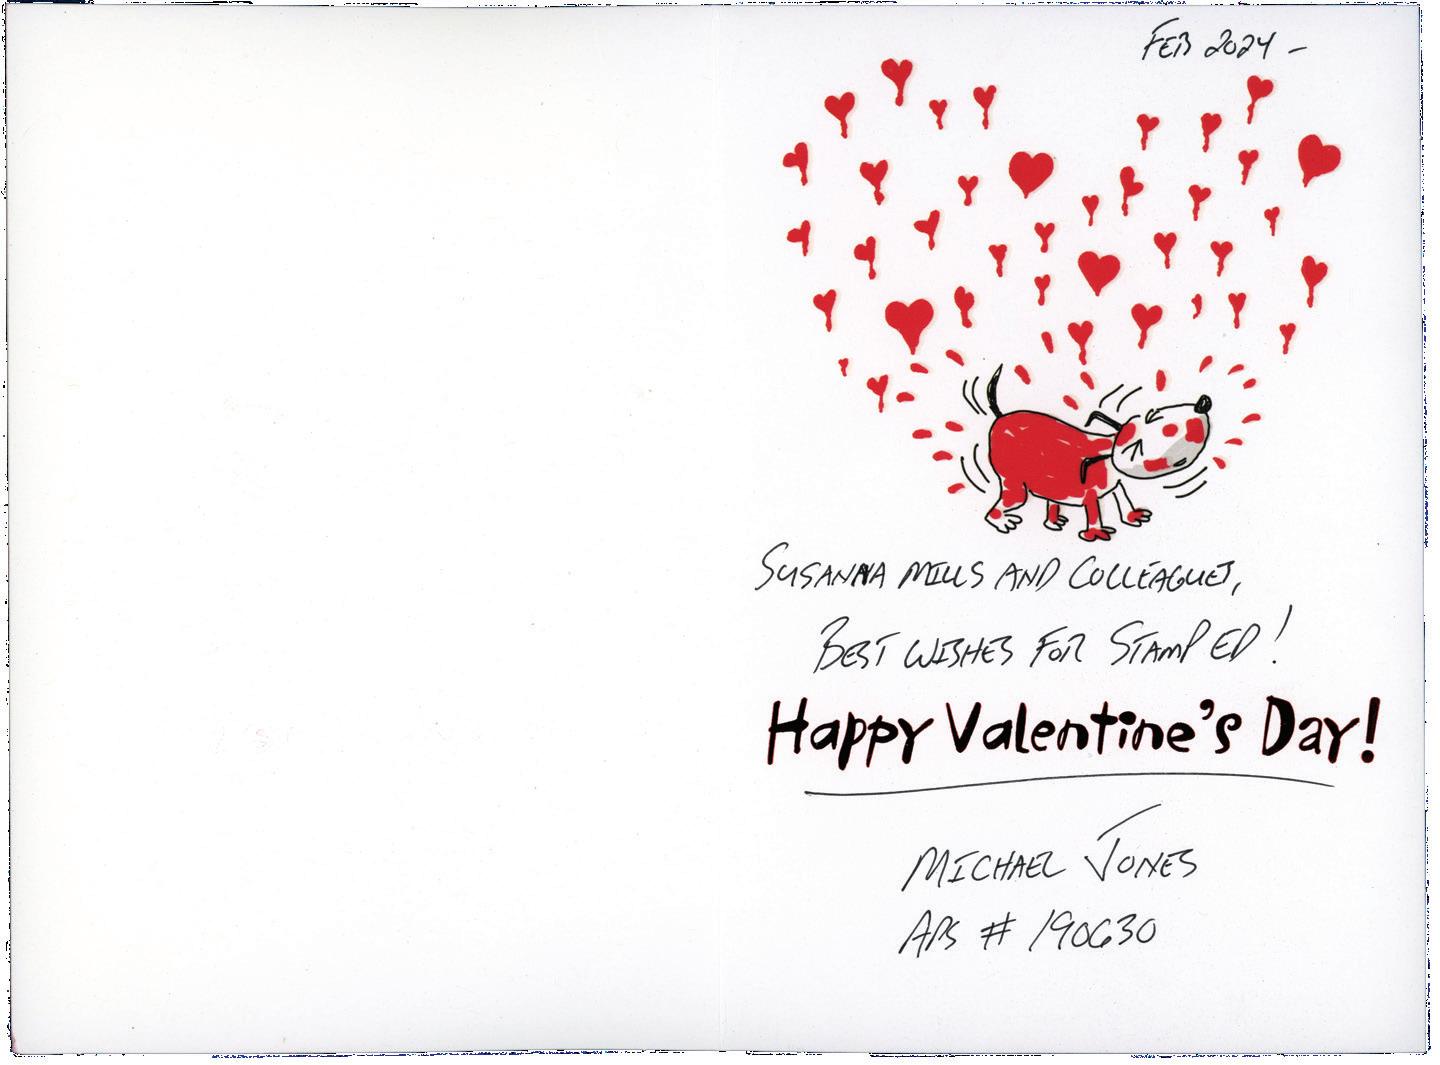 FEB 2024 -
SUSANNA MILLS AND COLLEAGUES,
BEST WISHES FOR STAMP ED!
Happy Valentine's Day!
MICHAEL JONES
APS # 190630